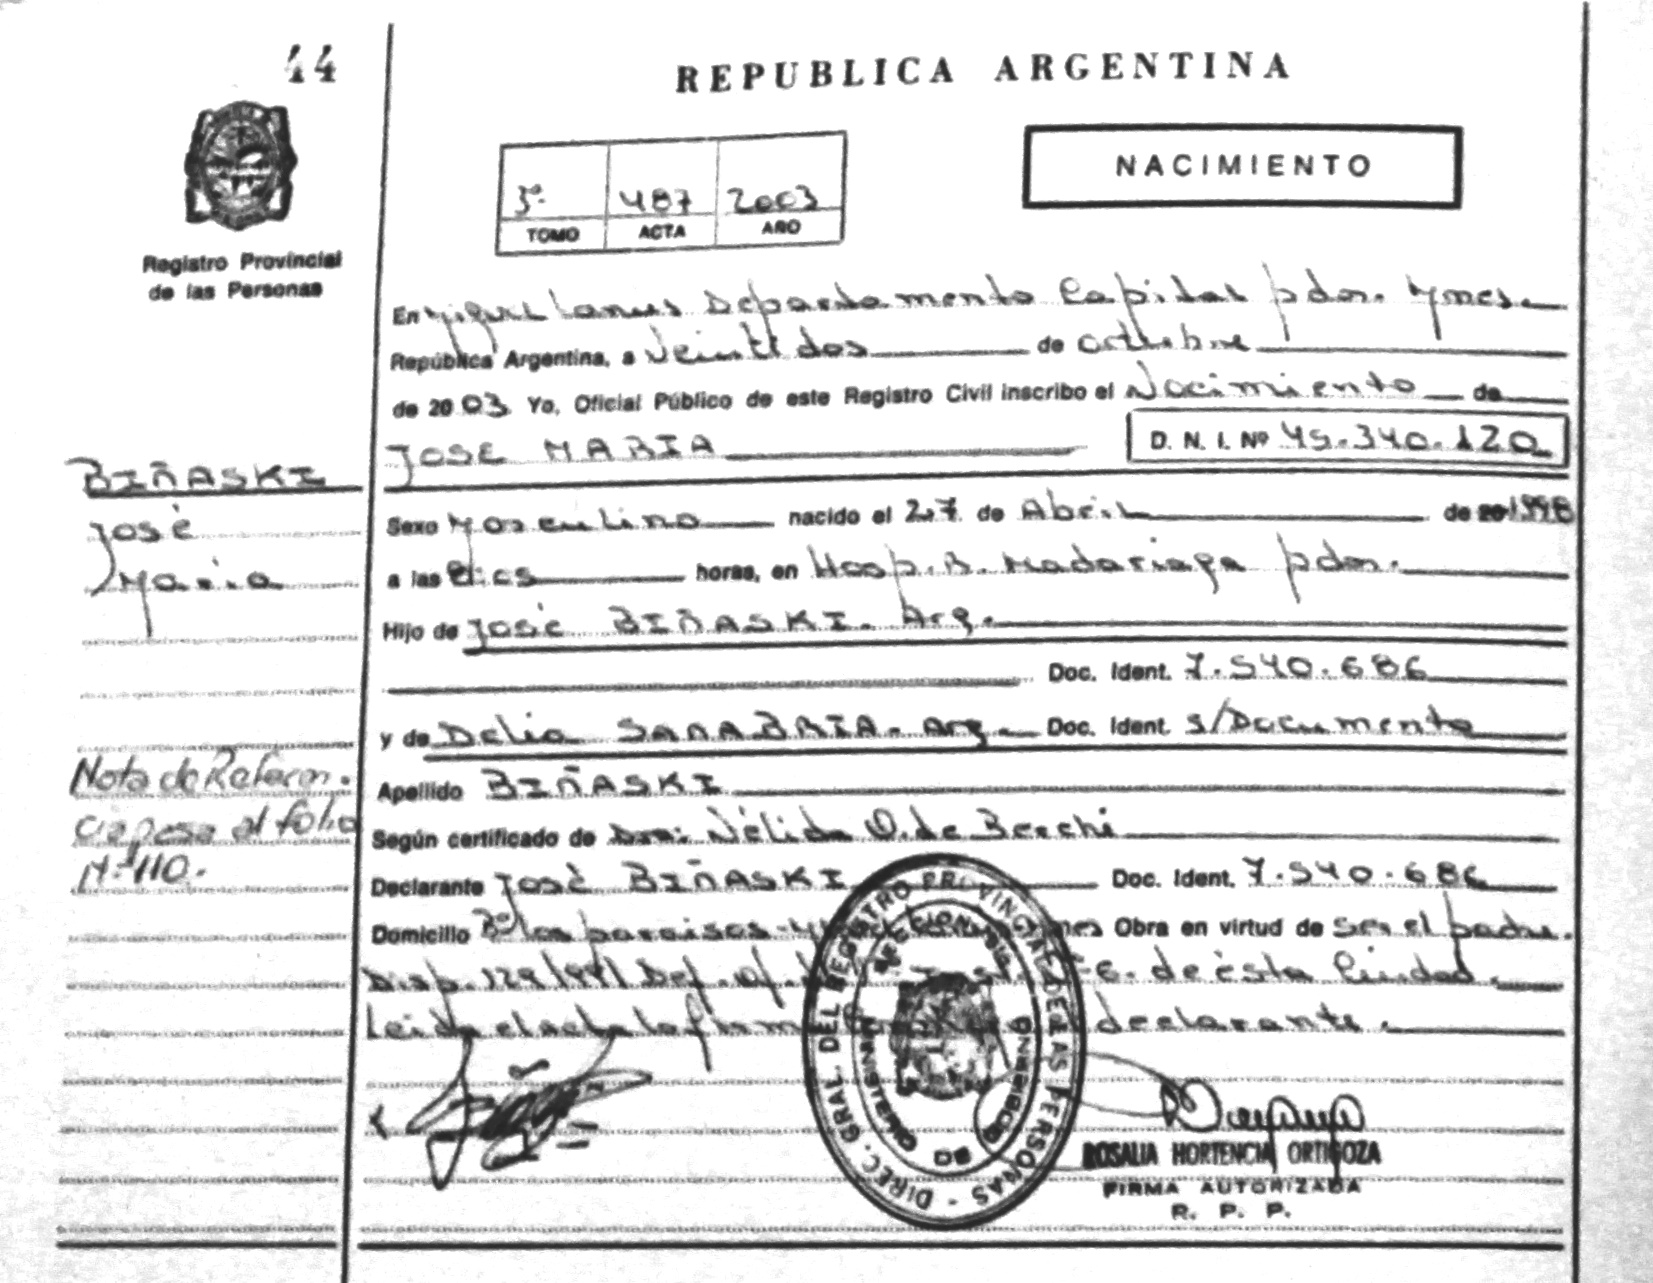 44
REPUBLICA ARGENTINA
NACIMIENTO
3º 487 2003
TOMO ACTA AÑO
Registro Provincial
de las Personas
En Miguel Lanus Departamento Capital pdor. Mnes.
República Argentina, a Veintidos de octubre
de 2003 Yo, Oficial Público de este Registro Civil inscribo el Nacimiento de
JOSE MARIA D. N. I. Nº 45.340.120
BIÑASKI
José
Maria
Sexo Masculino nacido el 27 de Abril de 1998
a las diez horas, en Hosp. R. Madariaga pdas.
Hijo de José BIÑASKI. Arg.
Doc. Ident. 7.540.686
y de Delia SANABRIA. Arg. Doc. Ident. s/Documento
Apellido BIÑASKI
Según certificado de Dra: Nélida O. de Becchi
Declarante José BIÑASKI Doc. Ident. 7.540.686
Domicilio Bº los paraisos Obra en virtud de Ser el padre.
Disp. 129/991 Def. de ésta Ciudad.
Leida el acta la firma declarante.
Nota de Referen.
cia pasa al folio
Nº 110.
DIREC. GRAL. DEL REGISTRO PROVINCIAL DE LAS PERSONAS
MINISTERIO DE GOBIERNO
ROSALIA HORTENCIA ORTIGOZA
FIRMA AUTORIZADA
R. P. P.